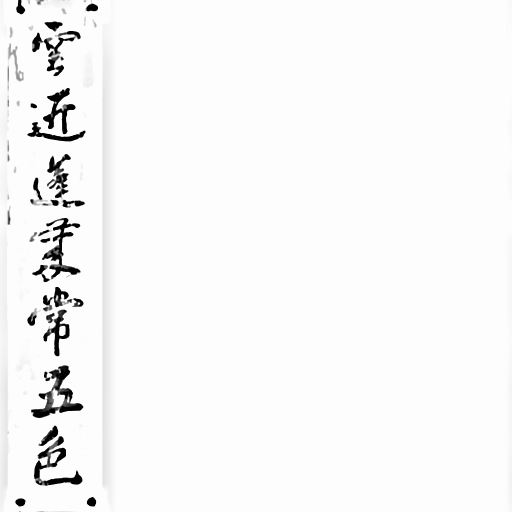 雲近蓬萊常五色